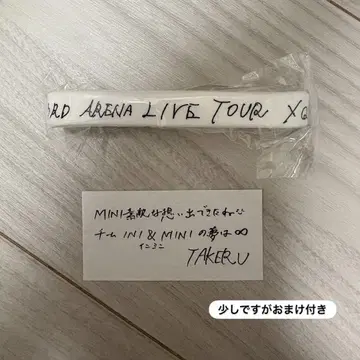 RD ARENA LIVE TOUR X
MINI 素敵な想い出できたかな
チーム INI & MINI の夢は∞
TAKERU
少しですがおまけ付き